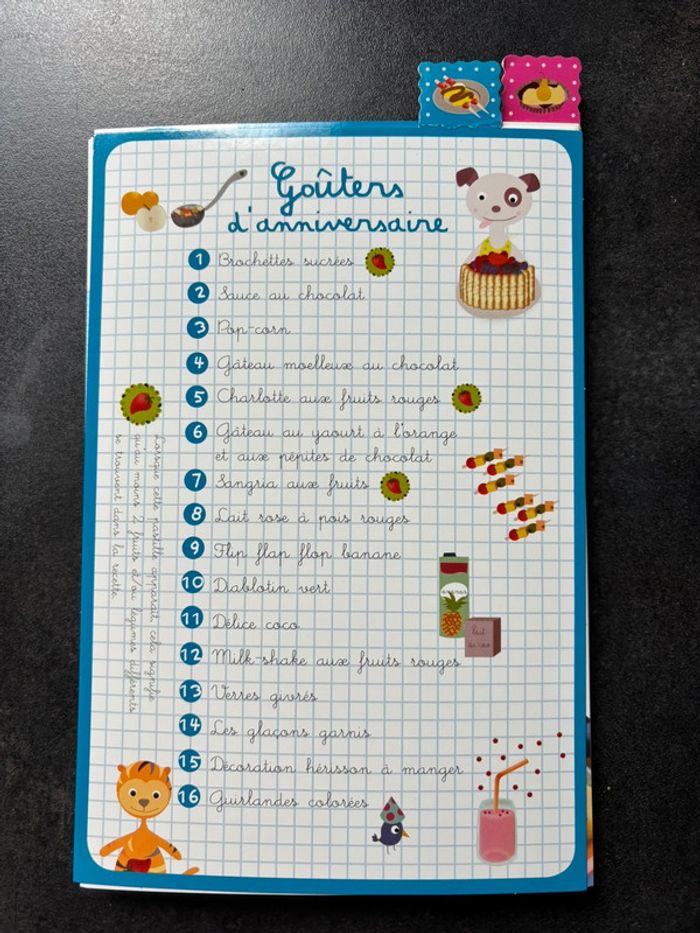 Goûters
d'anniversaire
1 Brochettes sucrées
2 Sauce au chocolat
3 Pop-corn
4 Gâteau moelleux au chocolat
5 Charlotte aux fruits rouges
6 Gâteau au yaourt à l'orange
et aux pépites de chocolat
7 Sangria aux fruits
8 Lait rose à pois rouges
9 Flip flap flop banane
10 Diablotin vert
11 Délice coco
12 Milk-shake aux fruits rouges
13 Verres givrés
14 Les glaçons garnis
15 Décoration hérisson à manger
16 Guirlandes colorées
Lorsque cette pastille apparaît, cela signifie
qu'au moins 2 fruits et/ou légumes différents
se trouvent dans la recette.
ananas
lait
de coco